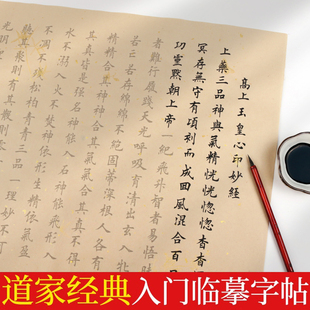 高上玉皇心印妙經
上藥三品神與氣精恍恍惚惚杳杳
冥存無守有頃刻而成回風混合百日
功靈默朝上帝一紀飛升智者易悟昧
者難行履踐天光呼吸育清出玄入牝
若亡若存綿綿不絕固蒂深根人各有
精精合其神神合其氣氣合其真不得
其真皆是強名神能入石神能飛形入
水不溺入火不焚神依形生精依氣盈
不凋不殘松柏青青三品一理妙不可
聽其聚則有其散則零
道家经典 入门临摹字帖